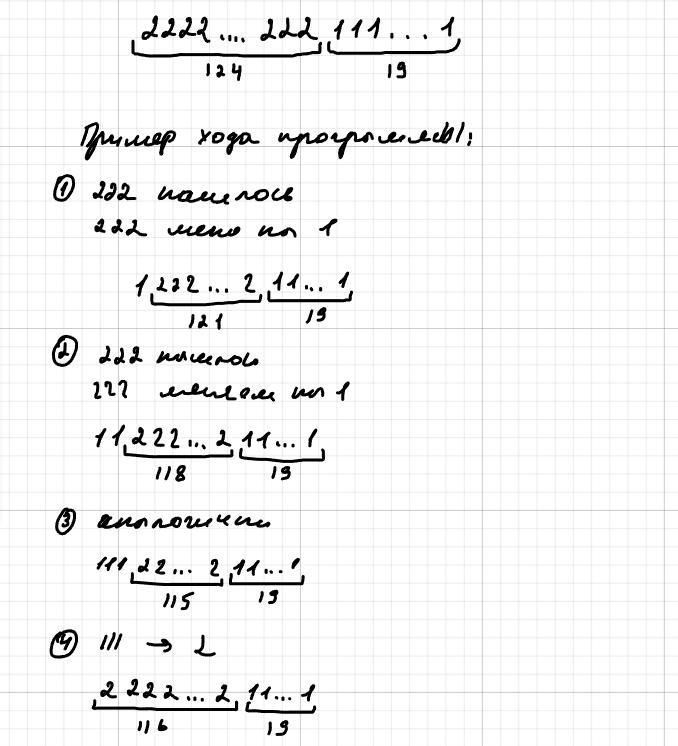 2222 .... 222 111 ... 1
124 19
Пример хода программы:
① 222 нашлось
222 меня на 1
1 222 ... 2 11 ... 1
121 19
② 222 нашлось
222 меняем на 1
11 222 ... 2 11 ... 1
118 19
③ аналогично
111 22 ... 2 11 ... 1
115 19
④ 111 → 2
2 222 ... 2 11 ... 1
116 19